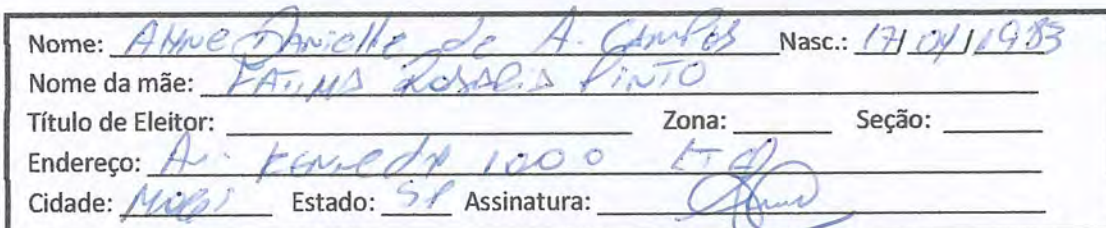 Nome: Anne Danielle de A. Campos Nasc.: 17/04/1983
Nome da mãe: FATIMA ROSALIA PINTO
Título de Eleitor: Zona: Seção:
Endereço: Av. Kennedy 1000
Cidade: Mogi Estado: SP Assinatura: